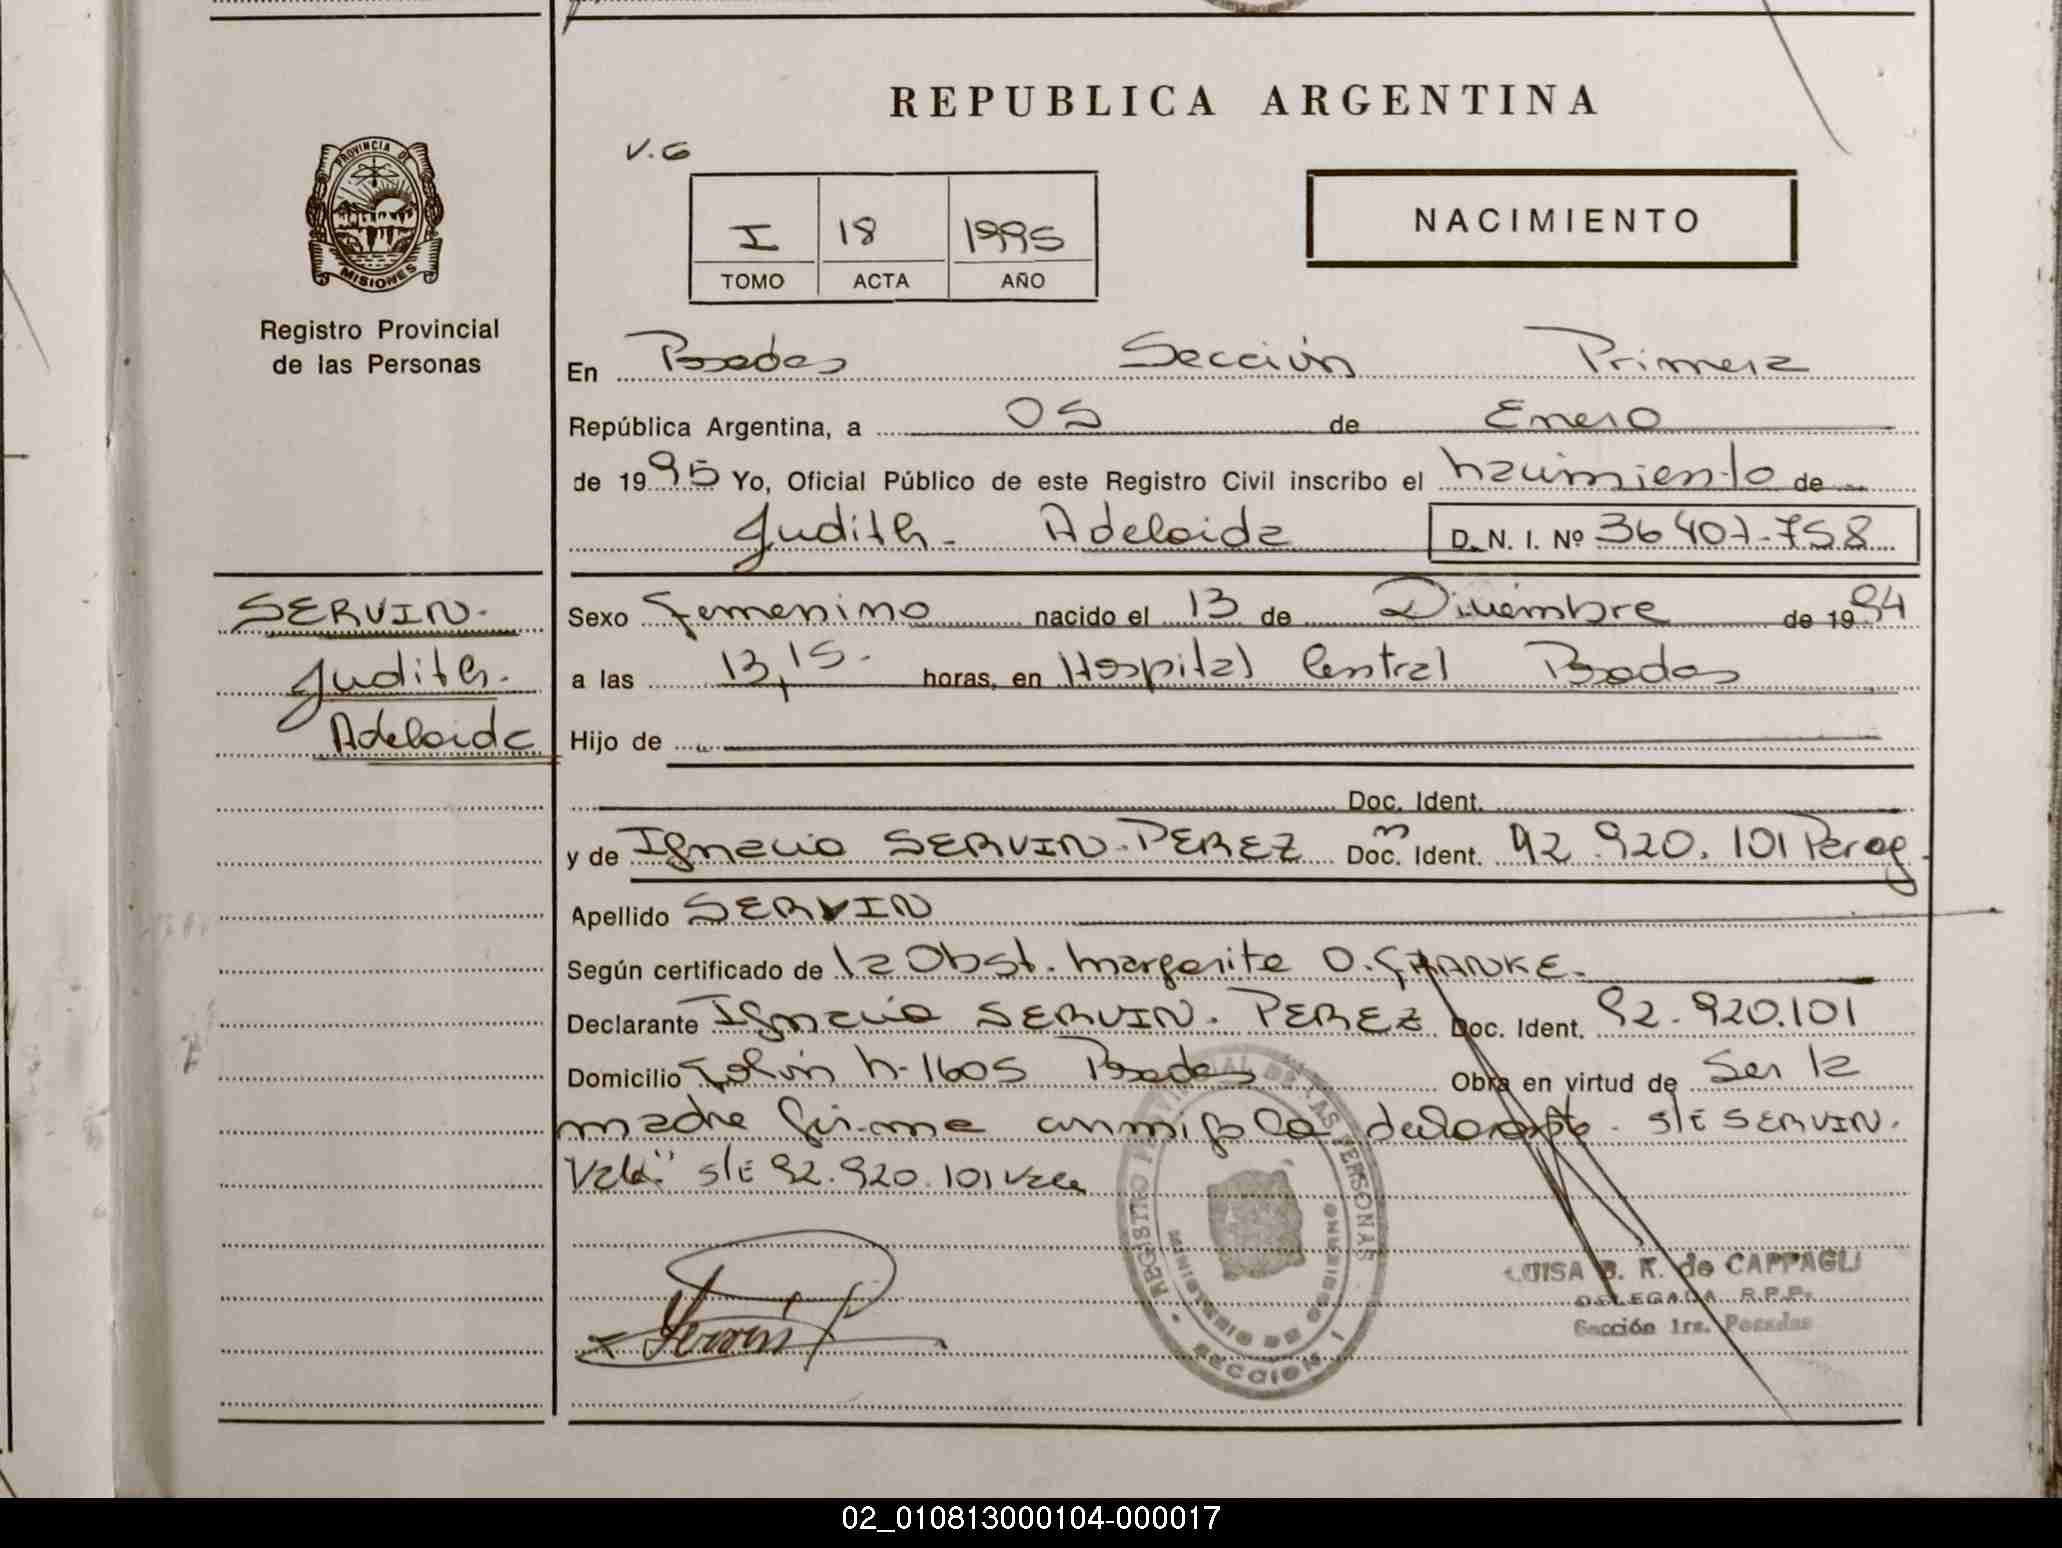 REPUBLICA ARGENTINA
V.G
PROVINCIA DE
MISIONES
I 18 1995
TOMO ACTA AÑO
NACIMIENTO
Registro Provincial
de las Personas
En Posadas Sección Primera
República Argentina, a 05 de Enero
de 1995 Yo, Oficial Público de este Registro Civil inscribo el nacimiento de
Judith Adelaida D. N. I. Nº 36407-758
SERVIN.
Judith.
Adelaida
Sexo Femenino nacido el 13 de Diciembre de 1994
a las 13,15. horas, en Hospital Central Posadas
Hijo de
Doc. Ident.
y de Ignacio SERVIN PEREZ Doc. Ident. 92.920.101 Parag.
Apellido SERVIN
Según certificado de la Obst. Margarita O.
Declarante Ignacio SERVIN. PEREZ Doc. Ident. 92.920.101
Domicilio N-1605 Posadas Obra en virtud de Ser la
madre firma conmigo la declarante. S/E SERVIN.
Vale" S/E 92.920.101 Vale
REGISTRO PROVINCIAL DE LAS PERSONAS
MINISTERIO DE GOBIERNO
SECCION I
LUISA B. K. de CAPPAGLI
DELEGADA R.P.P.
Sección 1ra. Posadas
Servin
02_010813000104-000017